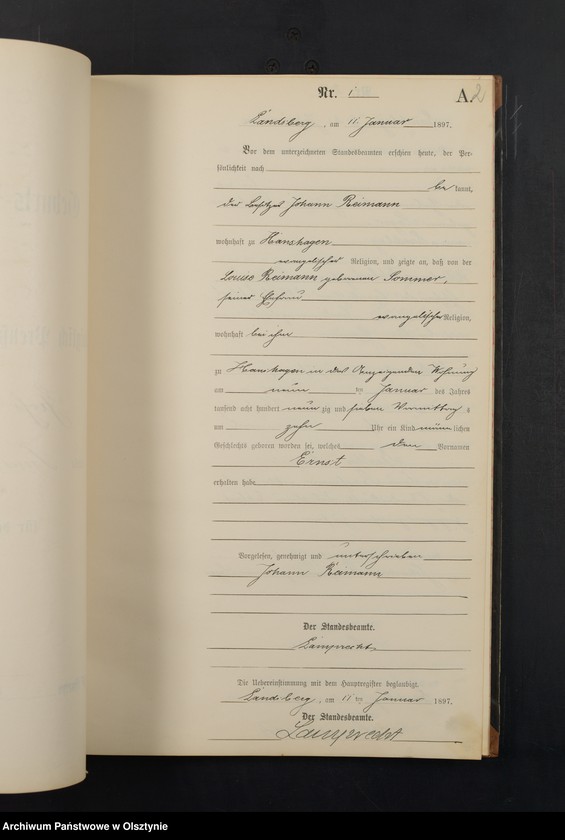 Nr. 1
A. 2
Landsberg, am 11. Januar 1897.
Vor dem unterzeichneten Standesbeamten erschien heute, der Per-
sönlichkeit nach
be kannt,
der Besitzer Johann Reimann
wohnhaft zu Hanshagen
evangelischer Religion, und zeigte an, daß von der
Louise Reimann geborenen Sommer,
seiner Ehefrau
evangelischer Religion,
wohnhaft bei ihm
zu Hanshagen in des Anzeigenden Wohnung
am neun ten Januar des Jahres
tausend acht hundert neun zig und sieben Vormittags
um zehn Uhr ein Kind männ lichen
Geschlechts geboren worden sei, welches den Vornamen
Ernst
erhalten habe
Vorgelesen, genehmigt und unterschrieben
Johann Reimann
Der Standesbeamte.
Lamprecht
Die Uebereinstimmung mit dem Hauptregister beglaubigt.
Landsberg, am 11 ten Januar 1897.
Der Standesbeamte.
Lamprecht
Archiwum Państwowe w Olsztynie